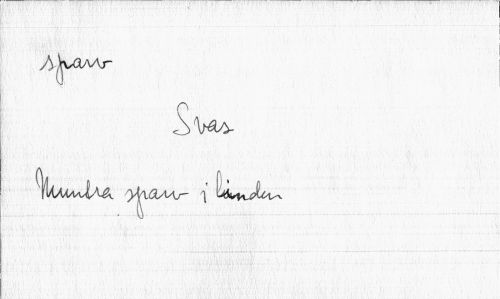 sparv
Svas
Muntra sparv i linden